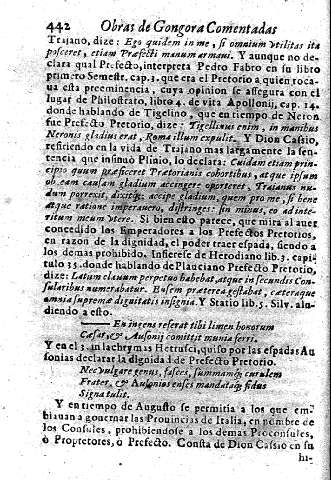 442 Obras de Gongora Comentadas
Trajano, dize: Ego quidem in me, si omnium utilitas ita
posceret, etiam Præfecti manum armaui. Y aunque no de-
clara qual Prefecto, interpreta Pedro Fabro en su libro
primero Semestr. cap. 1. que era el Pretorio a quien roca-
ua esta preeminencia, cuya opinion se assegura con el
lugar de Philostrato, libro 4. de vita Apollonij, cap. 14.
donde hablando de Tigelino, que en tiempo de Neron
fue Prefecto Pretorio, dize: Tigillinus enim, in manibus
Neronis gladius erat, Roma illum expulit. Y Dion Cassio,
refiriendo en la vida de Trajano mas largamente la sen-
tencia que insinuò Plinio, lo declara: Cuidam etiam prin-
cipio quum præficeret Prætorianis cohortibus, atque ipsum
ob eam causam gladium accingere oporteret, Traianus nu-
dum porrexit, accipe gladium, quem pro me, si bene
atque ratione imperauero, distringes: sin minus, eo ad inte-
ritum meum utere. Si bien esto parece, que mira al auer
concedido los Emperadores a los Prefectos Pretorios,
en razon de la dignidad, el poder traer espada, siendo a
los demàs prohibido. Infierese de Herodiano lib. 3. capi-
tulo 35. donde hablando de Plauciano Prefecto Pretorio,
dize: Latum clauum perpetuo habebat, atque in secundis Con-
sularibus numerabatur. Ensem præterea gestabat, cæteraque
omnia supremæ dignitatis insignia. Y Statio lib. 5. Silv. alu-
diendo a esto.
En ingens referat tibi limen honorum
Cæsar, & Ausonij comittit munia ferri.
Y en el 3. in lachrymas Hetrusci, quiso por las espadas Au-
sonias declarar la dignidad de Prefecto Pretorio.
Nec vulgare genus, fasces, summamq; curulem
Frater, & Ausonios enses mandataq; fidus
Signa tulit.
Y en tiempo de Augusto se permitia a los que em-
biauan a gouernar las Provincias de Italia, en nombre de
los Consules, prohibiendose a los demas Proconsules,
ò Propretores, ò Prefecto. Consta de Dion Cassio en su
hi-